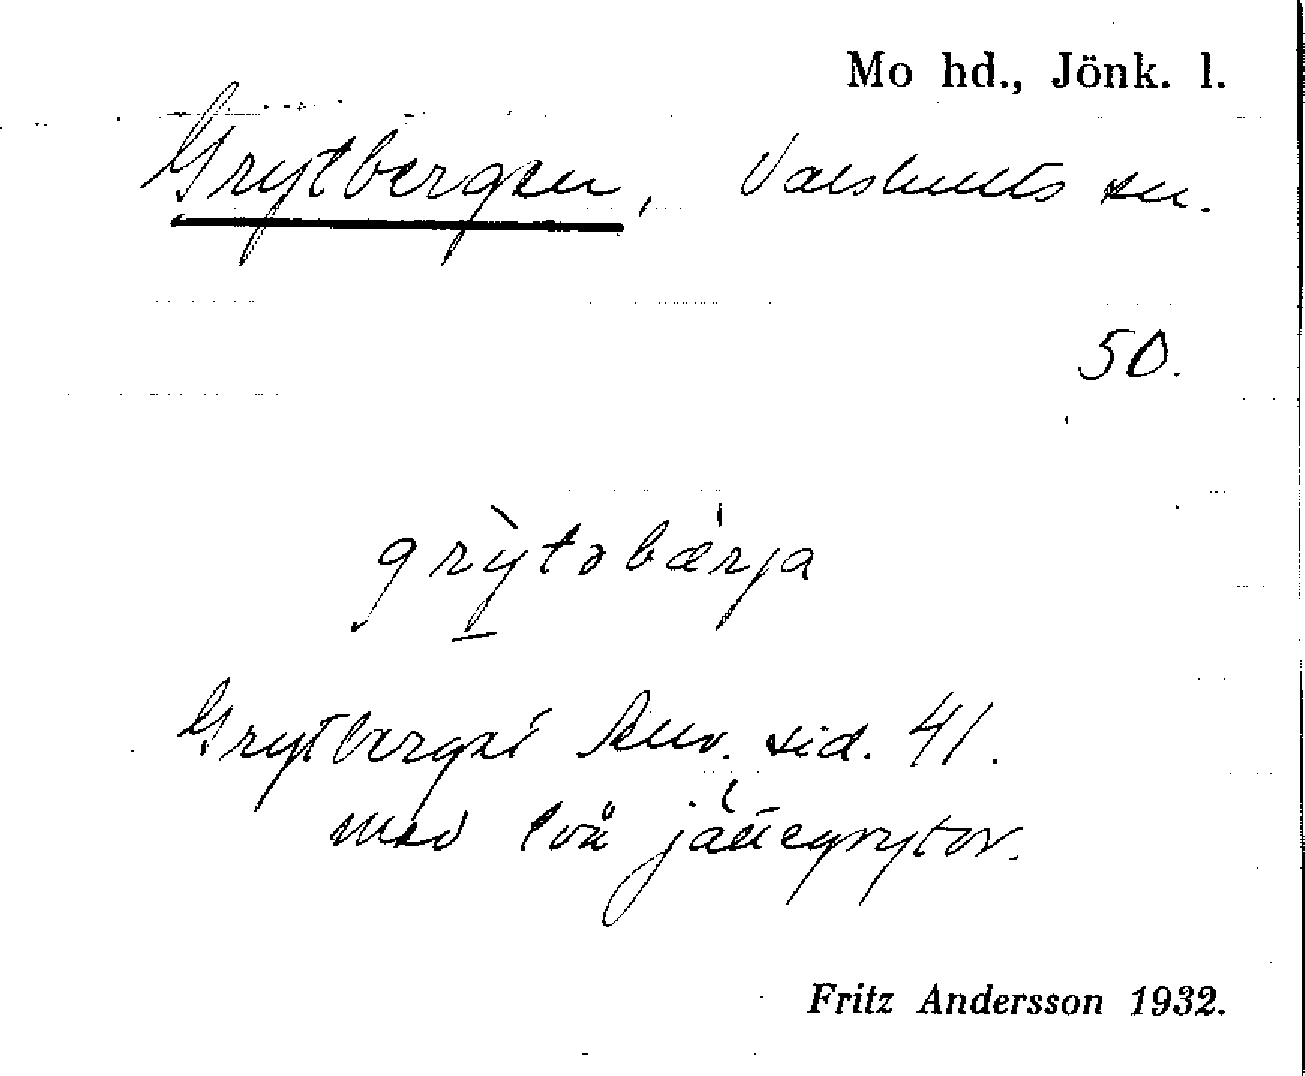 Mo hd., Jönk. l.
Grytbergen, Valshults sn.
50.
grỳtəbærja
Grytberget Anv. sid. 41.
med två jättegrytor.
Fritz Andersson 1932.